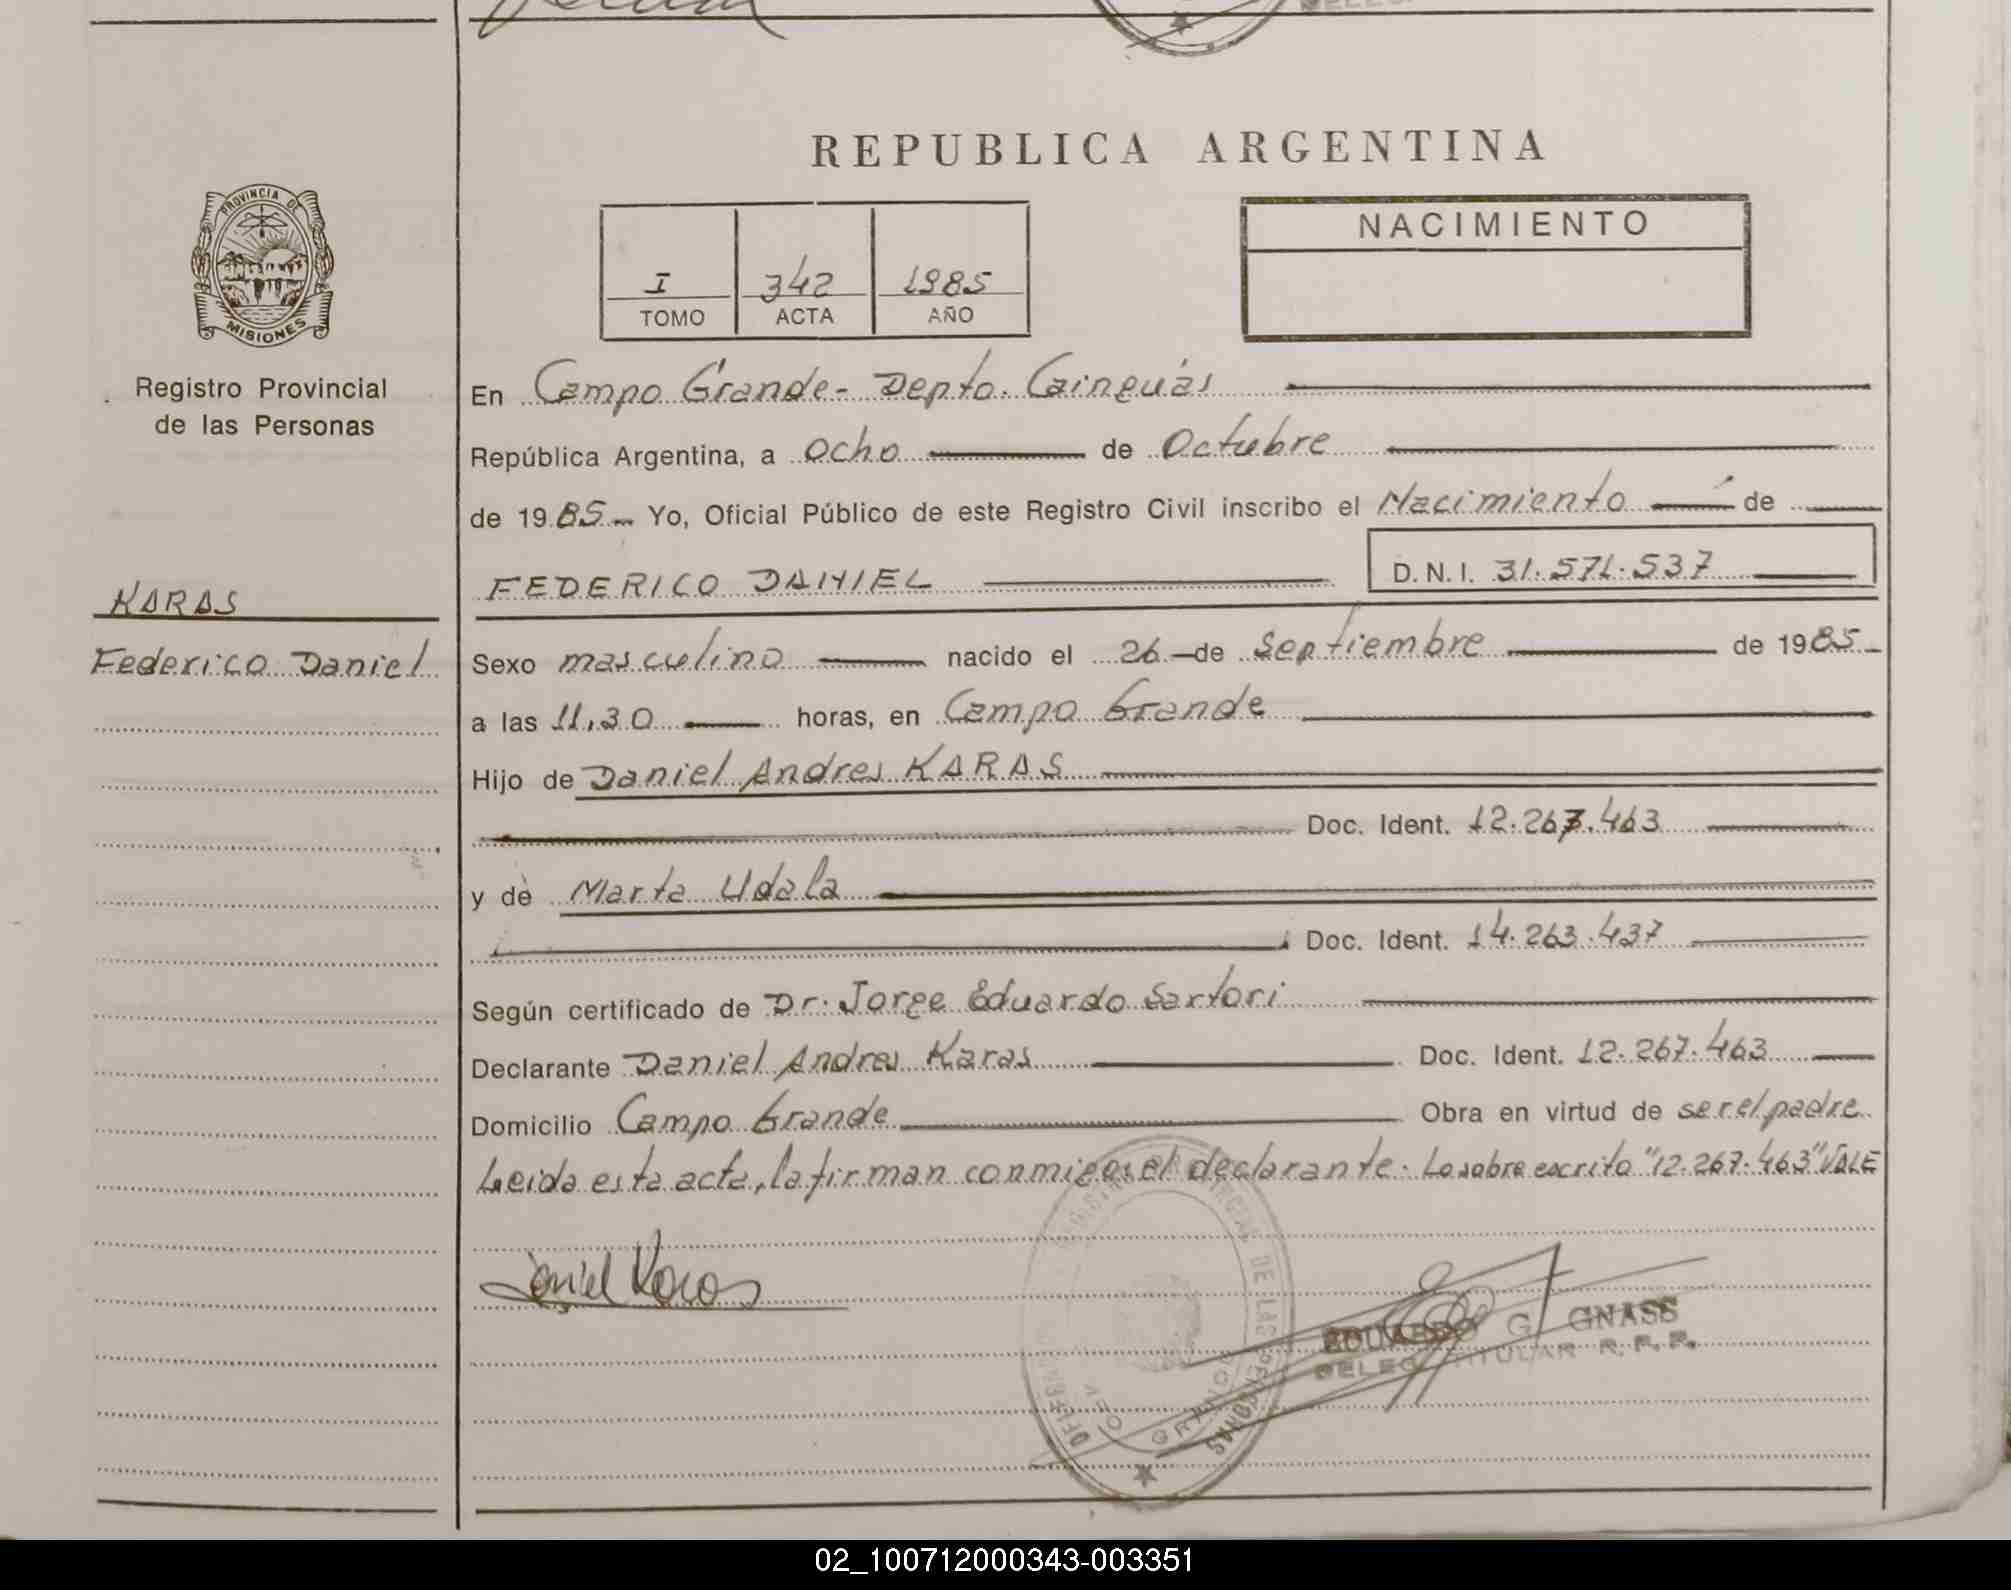 REPUBLICA ARGENTINA
PROVINCIA DE
MISIONES
Registro Provincial
de las Personas
I 342 1985
TOMO ACTA AÑO
NACIMIENTO
En Campo Grande- Depto. Cainguás
República Argentina, a ocho de Octubre
de 1985- Yo, Oficial Público de este Registro Civil inscribo el Nacimiento de
FEDERICO DANIEL D.N.I. 31.571.537
KARAS
Federico Daniel
Sexo masculino nacido el 26 de Septiembre de 1985-
a las 11,30 horas, en Campo Grande
Hijo de Daniel Andres KARAS
Doc. Ident. 12.267.463
y de Marta Udala
Doc. Ident. 14.263.437
Según certificado de Dr. Jorge Eduardo Sartori
Declarante Daniel Andres Karas Doc. Ident. 12.267.463
Domicilio Campo Grande Obra en virtud de ser el padre
Leida esta acta, la firman conmigo el declarante. Lo sobre escrito "12.267.463" VALE
Daniel Karas
EDUARDO G. GNASS
DELEG. TITULAR R.P.P.
DE LAS PERSONAS
GRANDE
02_100712000343-003351